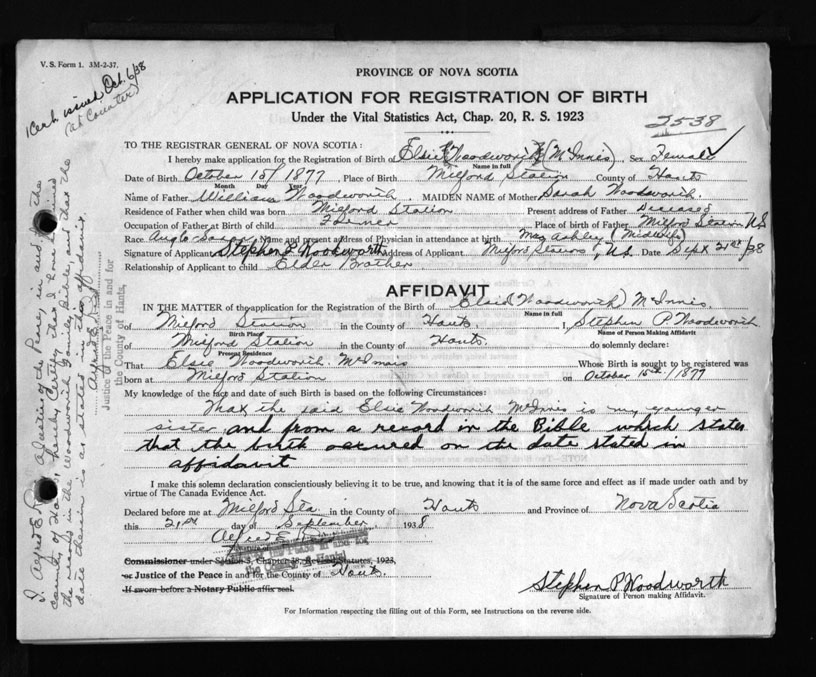 V. S. Form 1. 3M-2-37.
Cert issued Oct. 6/38
(at Counter)
PROVINCE OF NOVA SCOTIA
APPLICATION FOR REGISTRATION OF BIRTH
Under the Vital Statistics Act, Chap. 20, R. S. 1923
2538
TO THE REGISTRAR GENERAL OF NOVA SCOTIA:
I hereby make application for the Registration of Birth of Elsie Woodworth (McInnis) Sex Female
Name in full
Date of Birth October 15/1877, Place of Birth Milford Station County of Hants
Month Day Year
Name of Father William Woodworth. MAIDEN NAME of Mother Sarah Woodworth.
Residence of Father when child was born Milford Station Present address of Father Deceased
Occupation of Father at Birth of child Farmer Place of birth of Father Milford Station N.S
Race Anglo Saxon Name and present address of Physician in attendance at birth Mag Ashley (Midwife)
Signature of Applicant Stephen P Woodworth Address of Applicant Milford Station, N.S. Date Sept 21st/38
Relationship of Applicant to child Elder Brother
AFFIDAVIT
IN THE MATTER of the application for the Registration of the Birth of Elsie (Woodworth) McInnis
Name in full
of Milford Station in the County of Hants I, Stephen P. Woodworth
Birth Place Name of Person Making Affidavit
of Milford Station in the County of Hants. do solemnly declare:
Present Residence
That Elsie Woodworth. McInnis Whose Birth is sought to be registered was
born at Milford Station on October 15th/1877
My knowledge of the fact and date of such Birth is based on the following Circumstances:
That the said Elsie Woodworth McInnis is my younger
sister and from a record in the Bible which states
that the birth occured on the date stated in
affidavit
I make this solemn declaration conscientiously believing it to be true, and knowing that it is of the same force and effect as if made under oath and by
virtue of The Canada Evidence Act.
Declared before me at Milford Sta. in the County of Hants and Province of Nova Scotia
this 21st day of September 1938
Alfred E.
Commissioner under Section 3, Chapter 38, Revised Statutes, 1923,
or Justice of the Peace in and for the County of Hants.
If sworn before a Notary Public affix seal.
Stephen P Woodworth
Signature of Person making Affidavit.
For Information respecting the filling out of this Form, see Instructions on the reverse side.
I Alfred E. a Justice of the Peace in and for the
county of Hants, hereby Certify that I have examined
the records in the Woodworth Family Bible, and that the
date therein is as stated in this affidavit.
Alfred E.
Justice of the Peace in and for
the County of Hants,